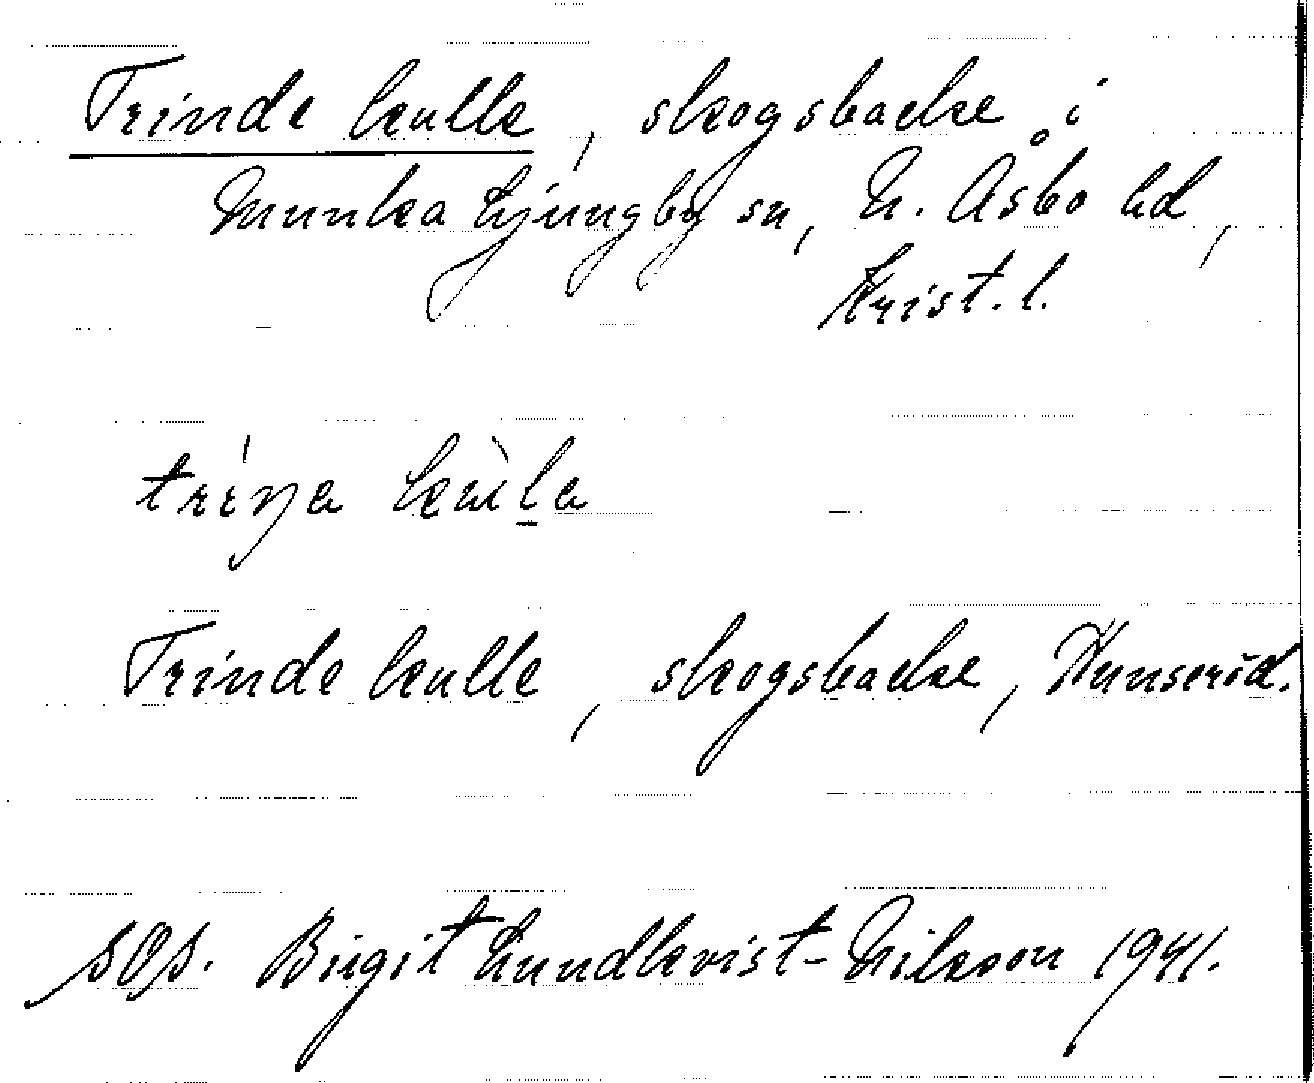 Trinde kulle, skogsbacke i
Munka Ljungby sn, N. Åsbo hd,
Krist. l.
Trinde kulle, skogsbacke, Hunseröd.
SOS. Birgit Lundkvist-Nilsson 1941.